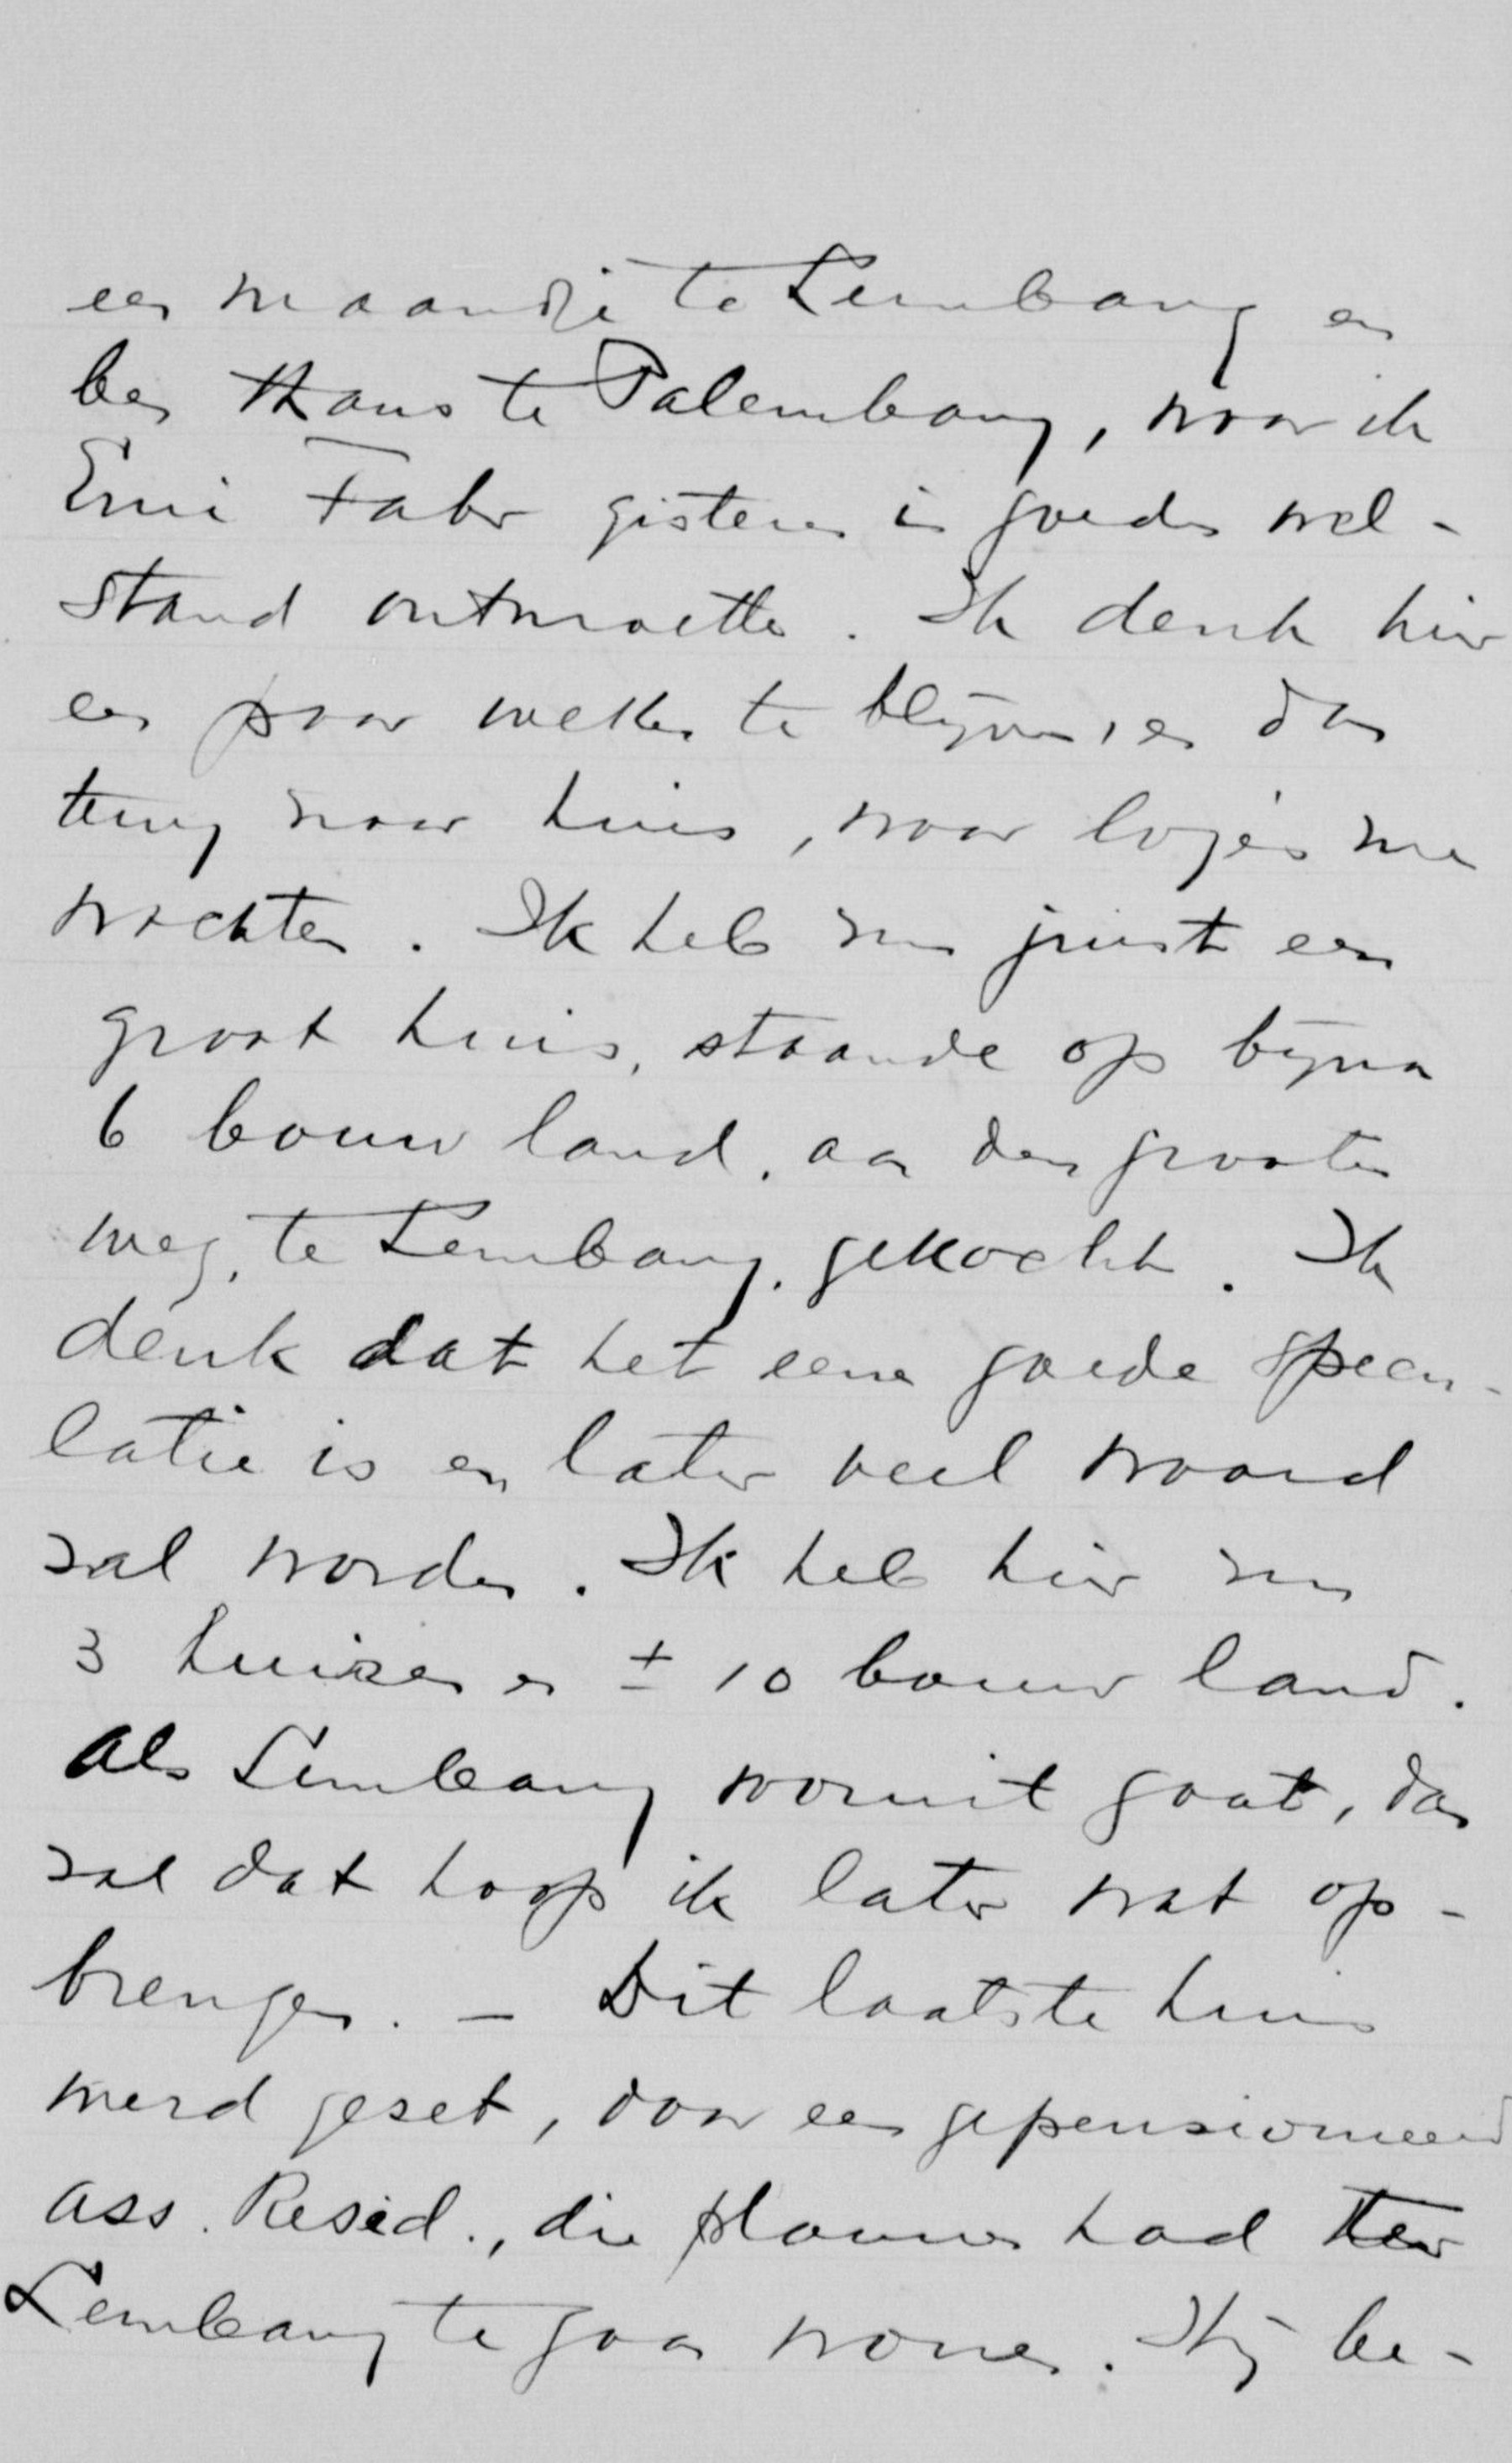 een maandje te Lembang en
ben thans te Palembang, waar ik
Emi Fabr gisteren in goeden wel-
stand ontmoette. Ik denk hier
een paar weken te blijven, en dan
terug naar huis, waar logés me
wachten. Ik heb nu juist een
groot huis, staande op bijna
6 bouw land, aan den grooten
weg, te Lembang, gekocht. Ik
denk dat het eene goede specu-
latie is en later veel waard
zal worden. Ik heb hier nu
3 huizen en ± 10 bouw land.
Als Lembang vooruit gaat, dan
zal dat hoop ik later wat op-
brengen. - Dit laatste huis
werd gezet, door een gepensioneerd
ass. Resid., die plannen had ter
Lembang te gaan wonen. Hij be-